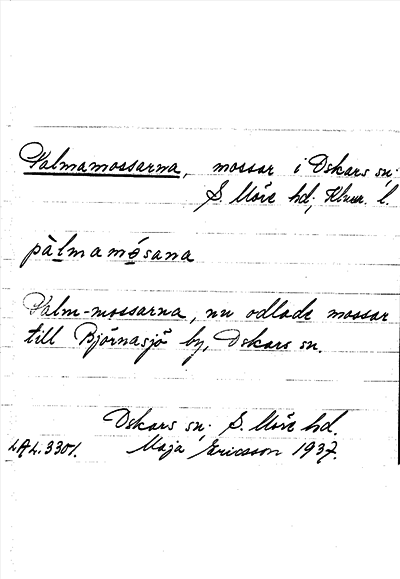 Palmamossarna, mossar i Oskars sn;
S. Möre hd; Kbmr. l.
pàlmamósana
Palm-mossarna, nu odlade mossar
till Björnasjö by, Oskars sn.
Oskars sn; S. Möre hd.
LAL. 3301. Maja Ericsson 1937.